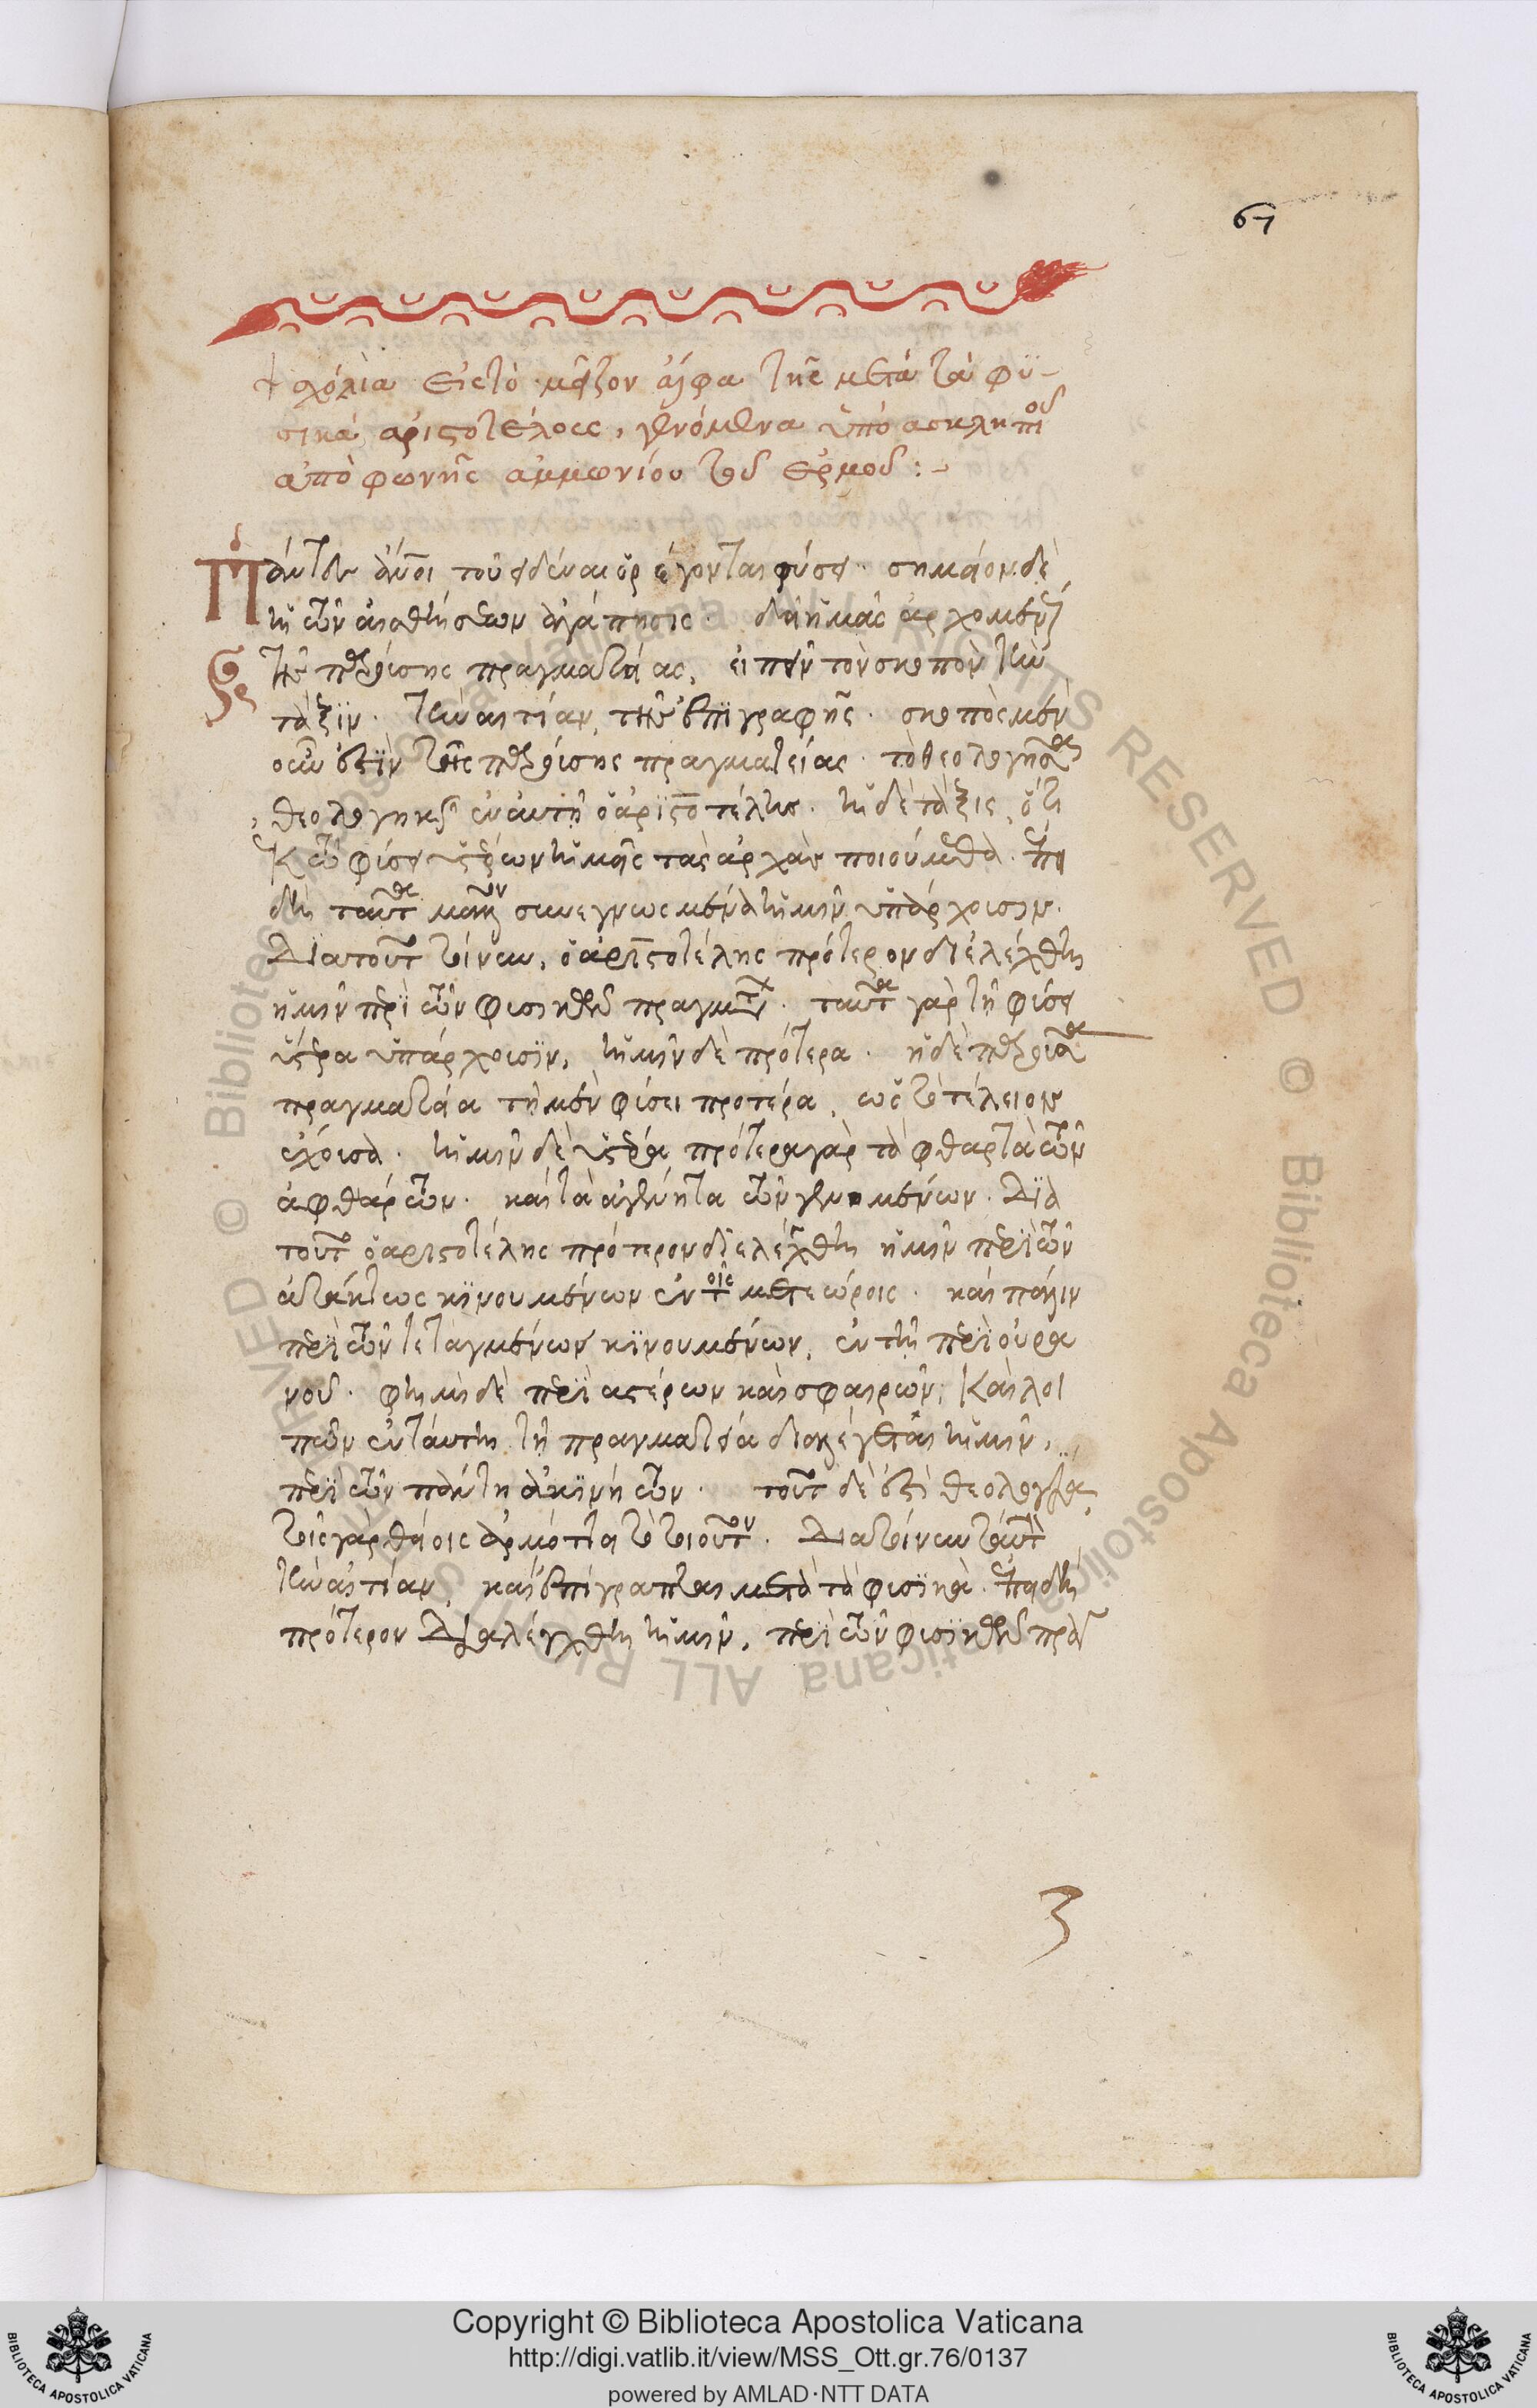 67
σχόλια εἰς τὸ μεῖζον ἄλφα τῆς μετὰ τὰ φυ-
σικὰ ἀριστοτέλους, γενόμενα ὑπὸ ἀσκληπιοῦ
ἀπὸ φωνῆς ἀμμωνίου τοῦ ἑρμοῦ :-
Πάντες ἄνοι τοῦ εἰδέναι ὀρέγονται φύσει· σημεῖον δὲ
ἡ τῶν αἰσθήσεων ἀγάπησις· δεῖ ἡμᾶς ἀρχομένους
τῆς παρούσης πραγματείας, εἰπεῖν τὸν σκοπὸν τὴν
τάξιν· τὴν αἰτίαν, τῆς ἐπιγραφῆς· σκοπὸς μὲν
οὖν ἐστὶν τῆς παρούσης πραγματείας· τὸ θεολογῆσαι
θεολογεῖ γὰρ ἐν αὐτῇ ὁ ἀριστοτέλης. ἡ δὲ τάξις, ὅτι
ἐκ τῶν φύσει ὑστέρων ἡμεῖς τὰς ἀρχὰς ποιούμεθα· ἐπει
δὴ ταῦτα μᾶλλον συνεγνωσμένα ἡμῖν ὑπάρχουσιν·
Διατοῦτο τοίνυν, ὁ ἀριστοτέλης πρότερον διελέχθη
ἡμῖν περὶ τῶν φυσικῶν πραγμάτων· ταῦτα γὰρ τῇ φύσει
ὕστερα ὑπάρχουσιν, ἡμῖν δὲ πρότερα· ἡ δὲ παροῦσα
πραγματεία τῇ μὲν φύσει προτέρα, ὡς τὸ τέλειον
ἔχουσα. ἡμῖν δὲ ὑστέρα πρότερα γὰρ τὰ φθαρτὰ τῶν
ἀφθάρτων· καὶ τὰ ἀγένητα τῶν γενομένων. Διὰ
τοῦτο ὁ ἀριστοτέλης πρότερον διελέχθη ἡμῖν περὶ τῶν
ἀτάκτως κινουμένων ἐν τοῖς μετεώροις· καὶ πάλιν
περὶ τῶν τεταγμένως κινουμένων, ἐν τῇ περὶ οὐρα
νοῦ· φημὶ δὲ περὶ ἀστέρων καὶ σφαιρῶν, Καὶ λοι
πὸν ἐν ταύτῃ τῇ πραγματεία διαλέγεται ἡμῖν,
περὶ τῶν πάντη ἀκινήτων· τοῦτο δὲ ἐστὶ θεολογία,
τοῖς γὰρ θείοις ἁρμόττει τὸ τοιοῦτον. Διατοίνυν ταύτην
τὴν αἰτίαν, καὶ ἐπιγράπται μετὰ τὰ φυσικά· ἐπειδὴ
πρότερον Διαλέγχθη ἡμῖν, περὶ τῶν φυσικῶν πρα
Copyright © Biblioteca Apostolica Vaticana
http://digi.vatlib.it/view/MSS_Ott.gr.76/0137
powered by AMLAD·NTT DATA